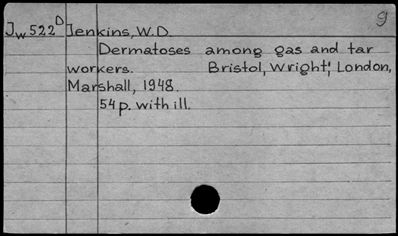 9
Jw522D Jenkins, W.D.
Dermatoses among gas and tar
workers. Bristol, Wright; London,
Marshall, 1948.
54p. with ill.